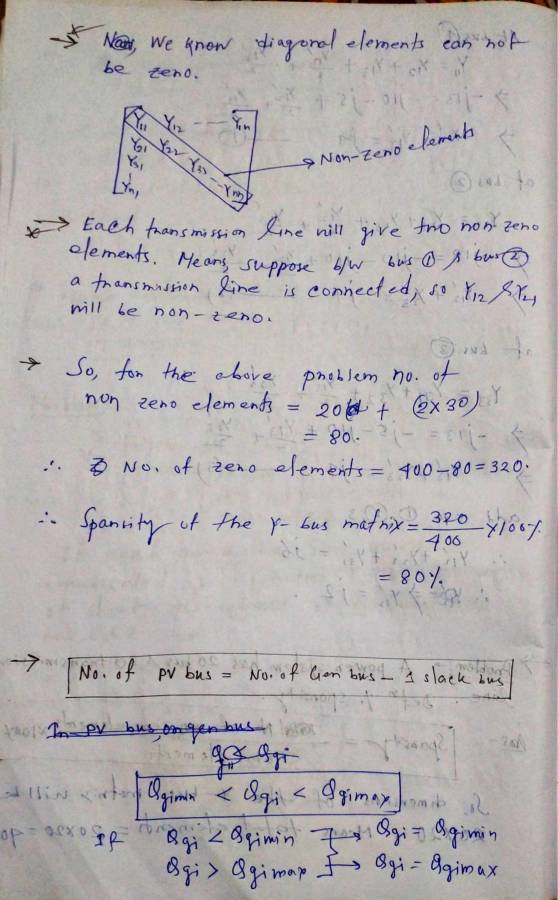 → Now, We know diagonal elements can not
be zero.
Y11 Y12 -- -- Y1n
Y21 Y22 Y23 -- Ynn
Y31
Yn1
→ Non-zero elements
→ Each transmission line will give two non-zero
elements. Means, suppose b/w bus ① & bus ②
a transmission line is connected, so Y12 & Y21
will be non-zero.
→ So, for the above problem no. of
non zero elements = 20 + (2×30)
= 80.
∴ No. of zero elements = 400-80=320.
∴ Sparsity of the Y-bus matrix = 320/400 ×100%
= 80%.
→ No. of PV bus = No. of Gen bus - 1 slack bus
In PV bus, or gen bus
Qgi
Qgimin < Qgi < Qgimax
IF Qgi < Qgimin → Qgi = Qgimin
Qgi > Qgimax → Qgi = Qgimax